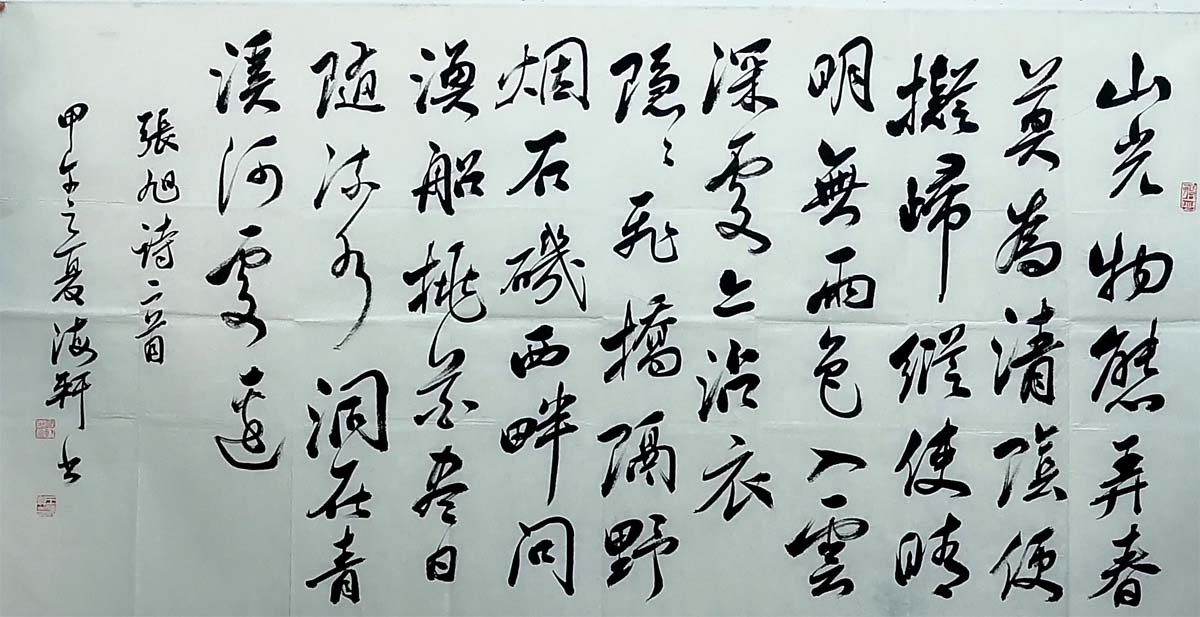 山光物態弄春
莫為清陰便
擬歸縱使晴
明無雨色入雲
深處亦沾衣
隱〻飛橋隔野
烟石磯西畔問
漁船桃花盡日
隨流水洞在青
溪河處邊
張旭詩二首
甲午之夏海軒书